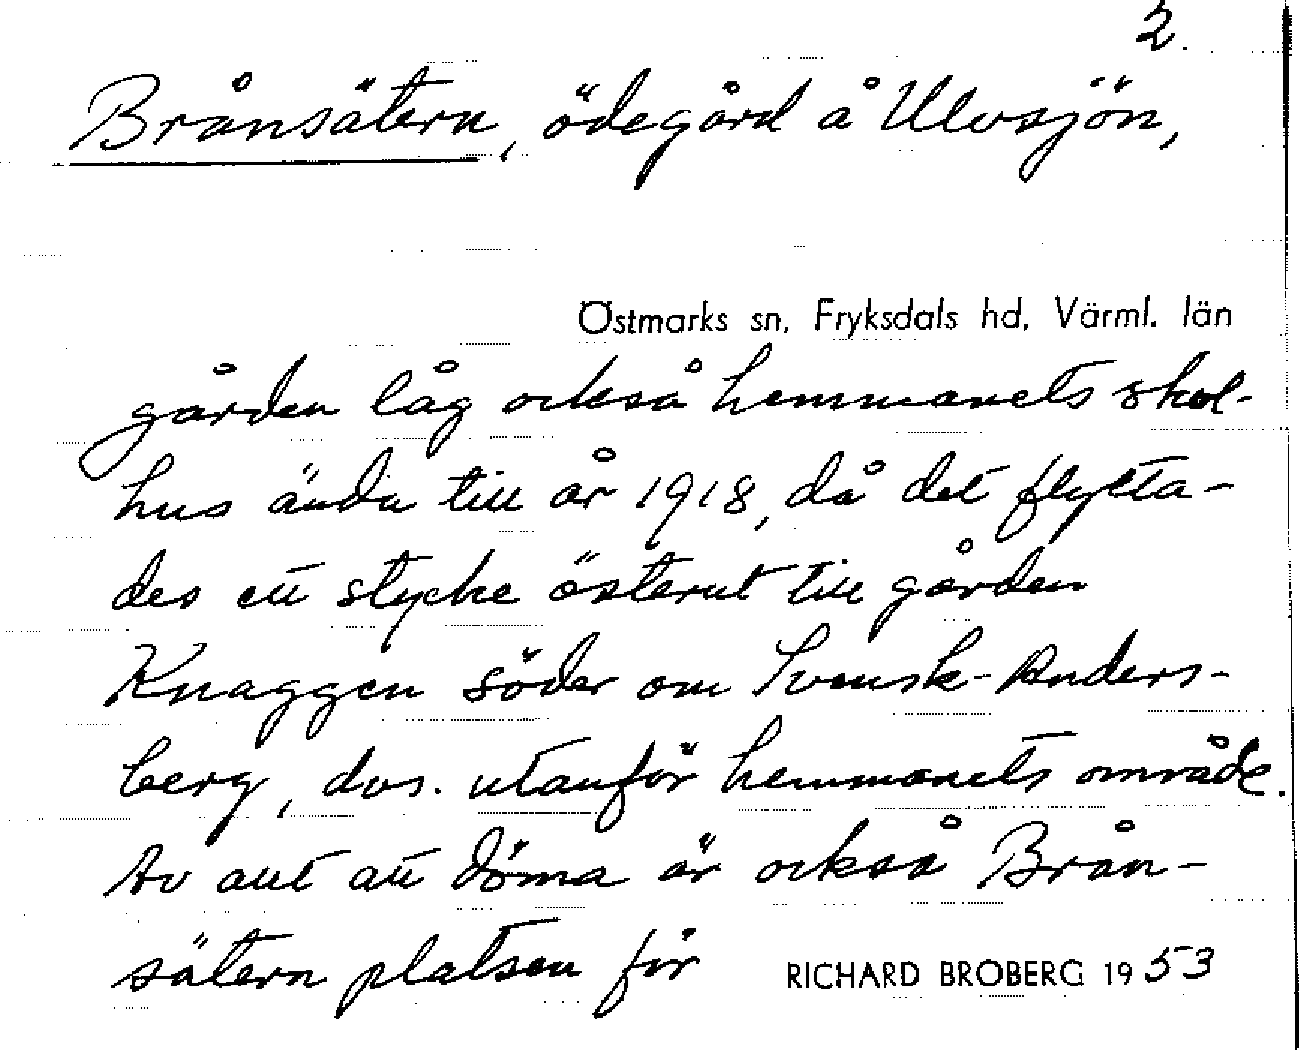 2.
Brånsätern, ödegård å Ulvsjön,
Östmarks sn, Fryksdals hd, Värml. län
gården låg också hemmanets skol-
hus ända till år 1918, då det flytta-
des ett stycke österut till gården
Knaggen söder om Svensk-Anders-
berg, dvs. utanför hemmanets område.
Av allt att döma är också Brån-
sätern platsen för
RICHARD BROBERG 1953